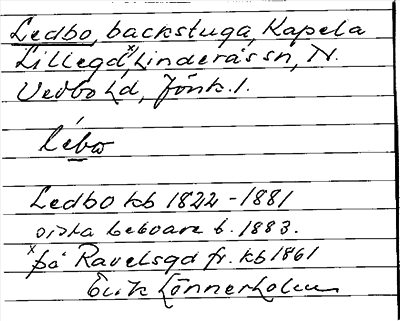 Ledbo, backstuga, Kapela
Lillegd,ˣ Linderås sn, N.
Vedbo hd, Jönk. l.
lébω
Ledbo kb 1822-1881
sista beboare b. 1883.
ˣ på Ravelsgd fr. kb 1861
Erik Lönnerholm